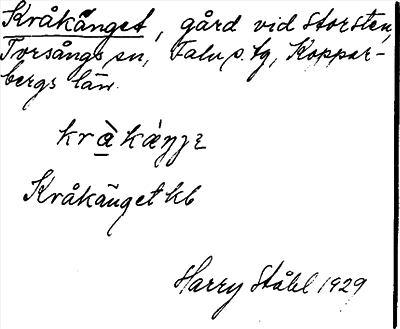 Kråkänget, gård vid Storsten,
Torsångs sn, Falu s. tg, Koppar-
bergs län.
Kråkänget kb
Harry Ståhl 1929